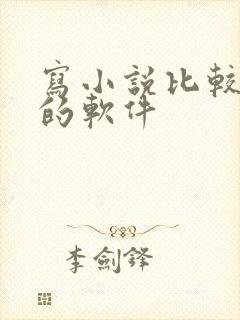 寫小說比較
的軟件
李劍鋒